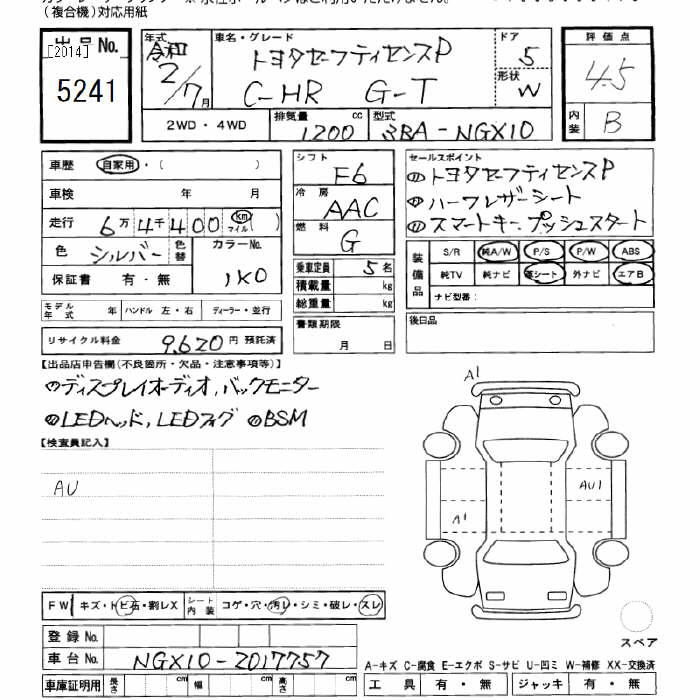 (複合機)対応用紙
出品No.
[2014]
5241
年式
令和
2/7月
車名・グレード
トヨタセーフティセンスP
C-HR G-T
ドア
5
形状
W
評価点
4.5
内装
B
2WD・4WD
排気量
1200 cc
型式
3BA-NGX10
車歴 自家用・( )
車検 年 月
走行 6万4千400 km マイル( )
色 シルバー 色替 カラーNo.
1K0
保証書 有・無
モデル年式 年 ハンドル 左・右 ディーラー・並行
リサイクル料金 9,620円 預託済
シフト
F6
冷房
AAC
燃料
G
乗車定員 5名
積載量 kg
総重量 kg
書類期限
月 日
セールスポイント
トヨタセーフティセンスP
ハーフレザーシート
スマートキー、プッシュスタート
装備品
S/R 純A/W P/S P/W ABS
純TV 純ナビ 革シート 外ナビ エアB
ナビ型番:
後日品
【出品店申告欄(不良箇所・欠品・注意事項等)】
ディスプレイオーディオ、バックモニター
LEDヘッド、LEDフォグ BSM
【検査員記入】
AU
A1
AU1
A1
スペア
FW キズ・トビ石・割レX シート内装 コゲ・穴・汚レ・シミ・破レ・スレ
登録No.
車台No. NGX10-2017757
車庫証明用 長さ cm 幅 cm 高さ cm
A-キズ C-腐食 E-エクボ S-サビ U-凹ミ W-補修 XX-交換済
工具 有・無 ジャッキ 有・無